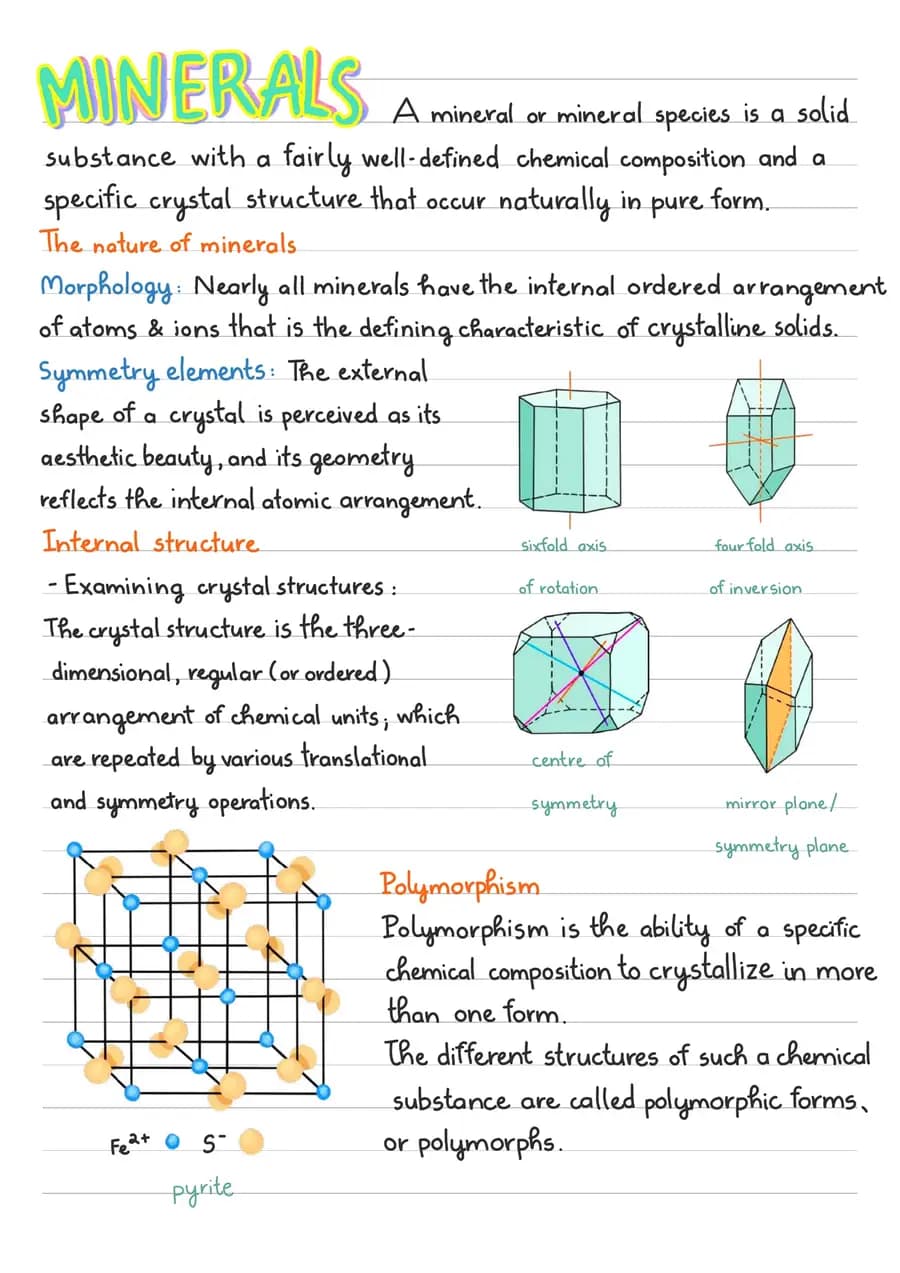 MINERALS A mineral or mineral species is a solid
substance with a fairly well-defined chemical composition and a
specific crystal structure that occur naturally in pure form.
The nature of minerals
Morphology: Nearly all minerals have the internal ordered arrangement
of atoms & ions that is the defining characteristic of crystalline solids.
Symmetry elements: The external
shape of a crystal is perceived as its
aesthetic beauty, and its geometry
reflects the internal atomic arrangement.
sixfold axis
of rotation
fourfold axis
of inversion
Internal structure
- Examining crystal structures:
The crystal structure is the three-
dimensional, regular (or ordered)
arrangement of chemical units; which
are repeated by various translational
and symmetry operations.
centre of
symmetry
mirror plane/
symmetry plane
Fe²⁺ S⁻
pyrite
Polymorphism
Polymorphism is the ability of a specific
chemical composition to crystallize in more
than one form.
The different structures of such a chemical
substance are called polymorphic forms,
or polymorphs.